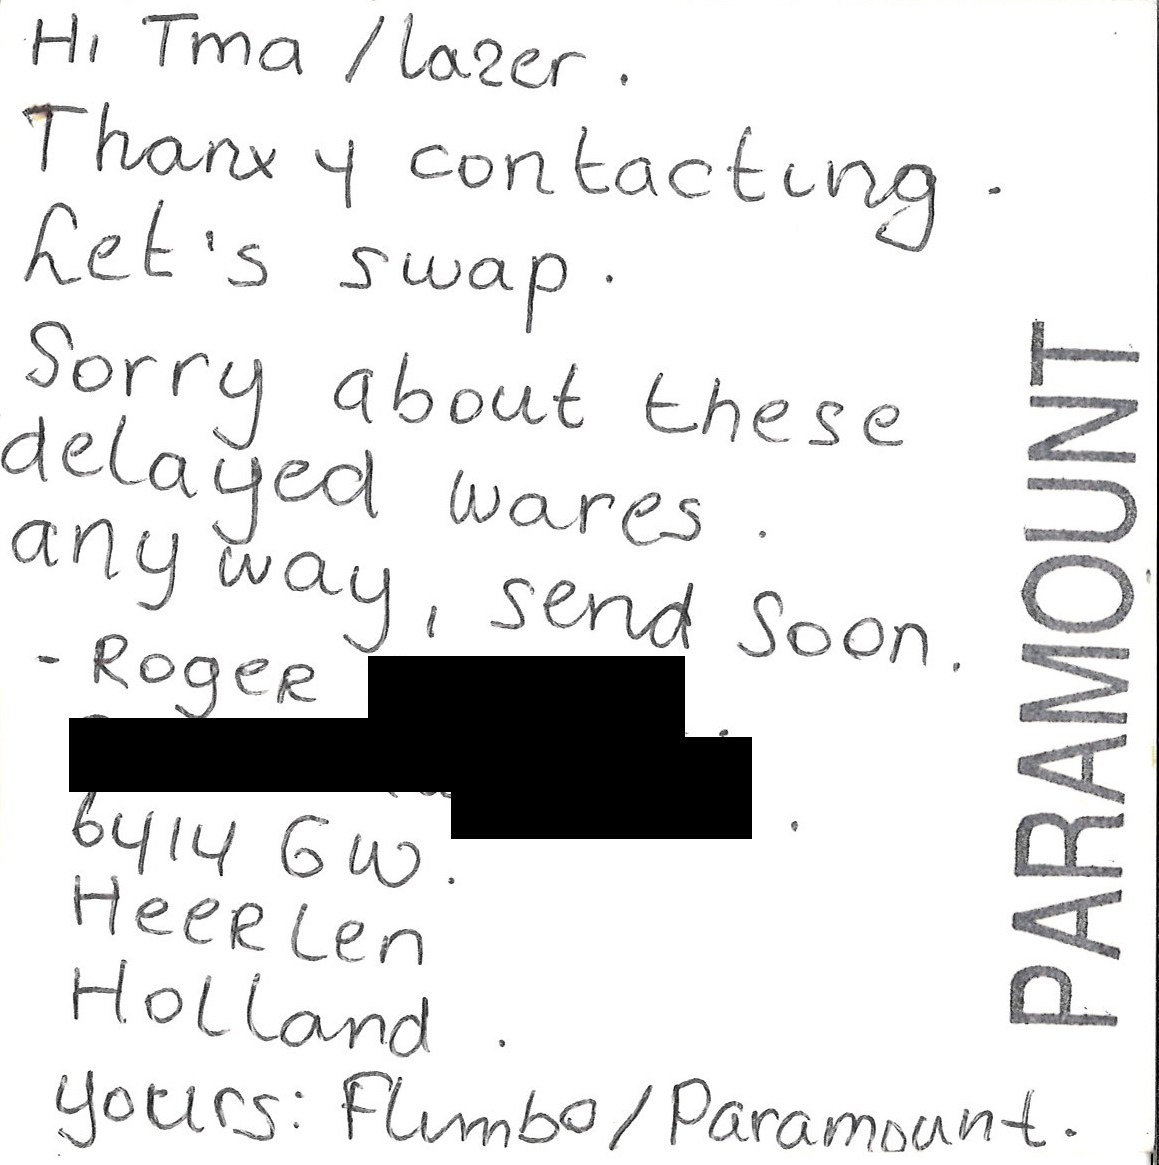 Hi Tma / lazer.
Thanx 4 contacting.
Let's swap.
Sorry about these
delayed wares.
anyway, send soon.
- Roger
6414 GW.
Heerlen
Holland.
yours: Flimbo/Paramount.
PARAMOUNT